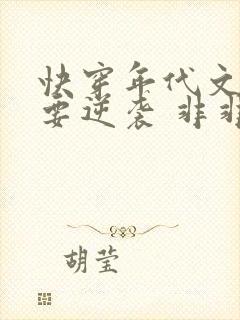 快穿年代文
要逆袭 非非
胡莹